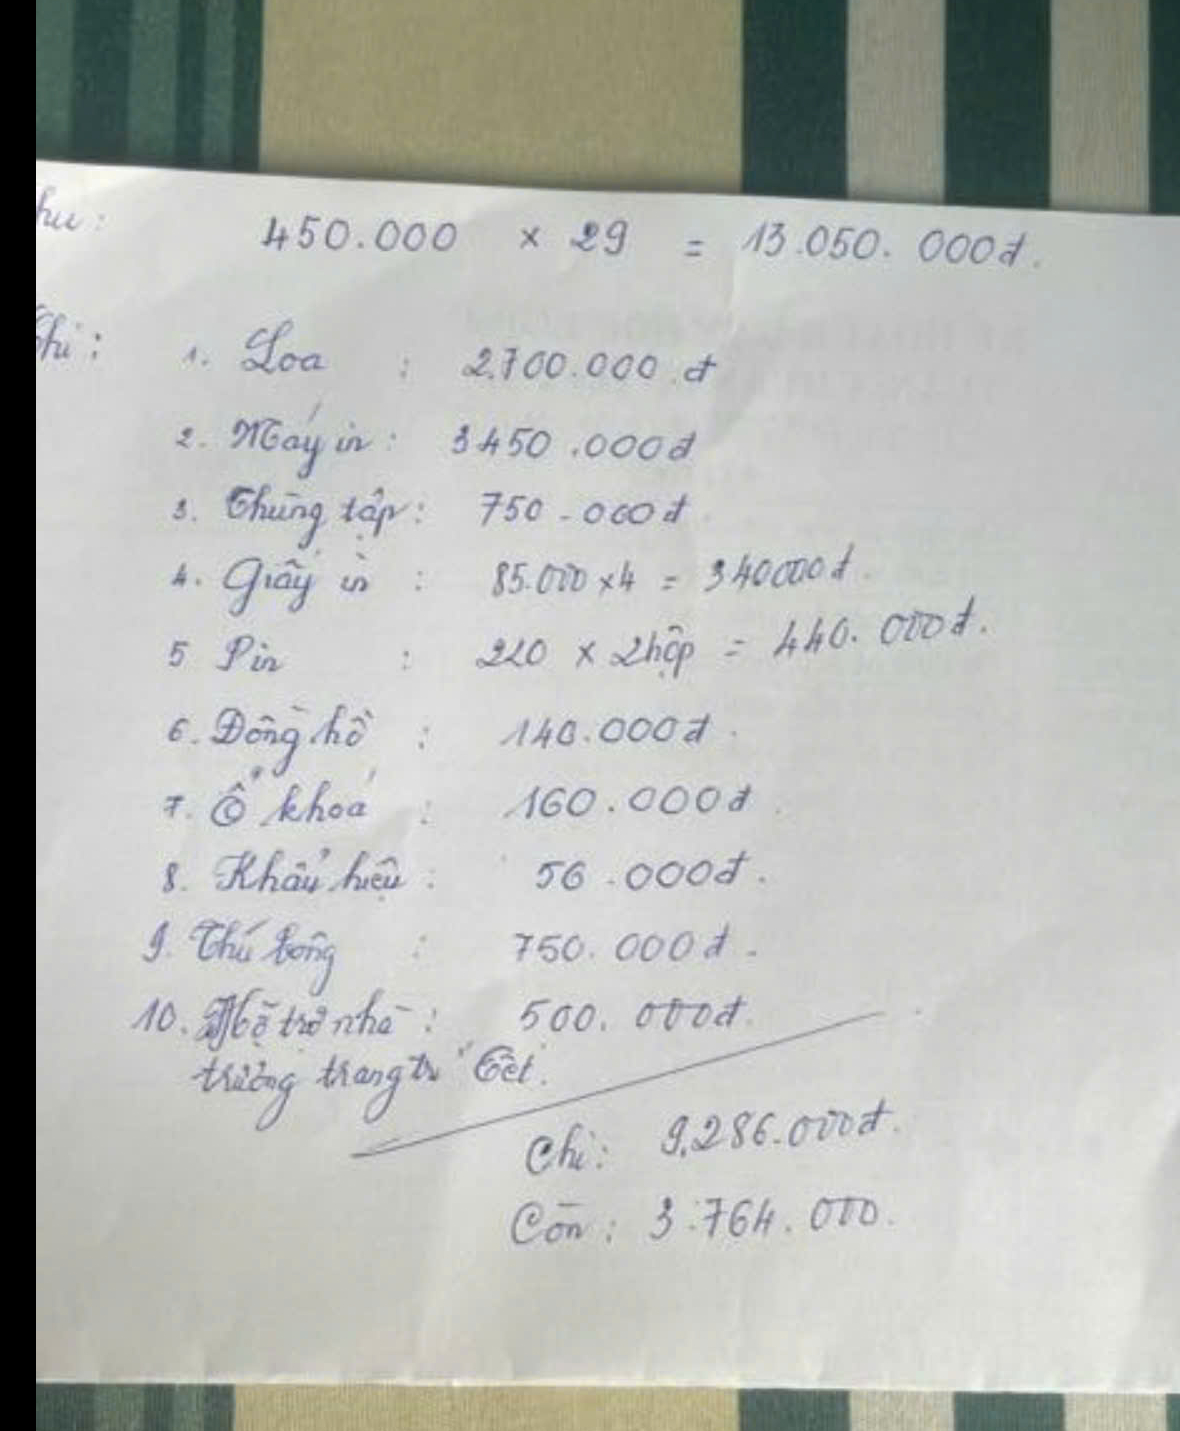 hu : 450.000 × 29 = 13.050.000đ.
Chi : 1. Loa : 2.700.000 đ
2. Máy in : 3450.000đ
3. Thùng tập : 750.000đ
4. Giấy in : 85.000 x4 = 340000đ.
5 Pin : 220 x 2hộp = 440.000đ.
6. Đồng hồ : 140.000đ.
7. Ổ khoá : 160.000đ
8. Khẩu hiệu : 56.000đ.
9. Thú bông : 750.000đ.
10. Hỗ trợ nhà : 500.000đ.
trường trang trí Tết.
Chi : 9.286.000đ.
Còn : 3.764.000.